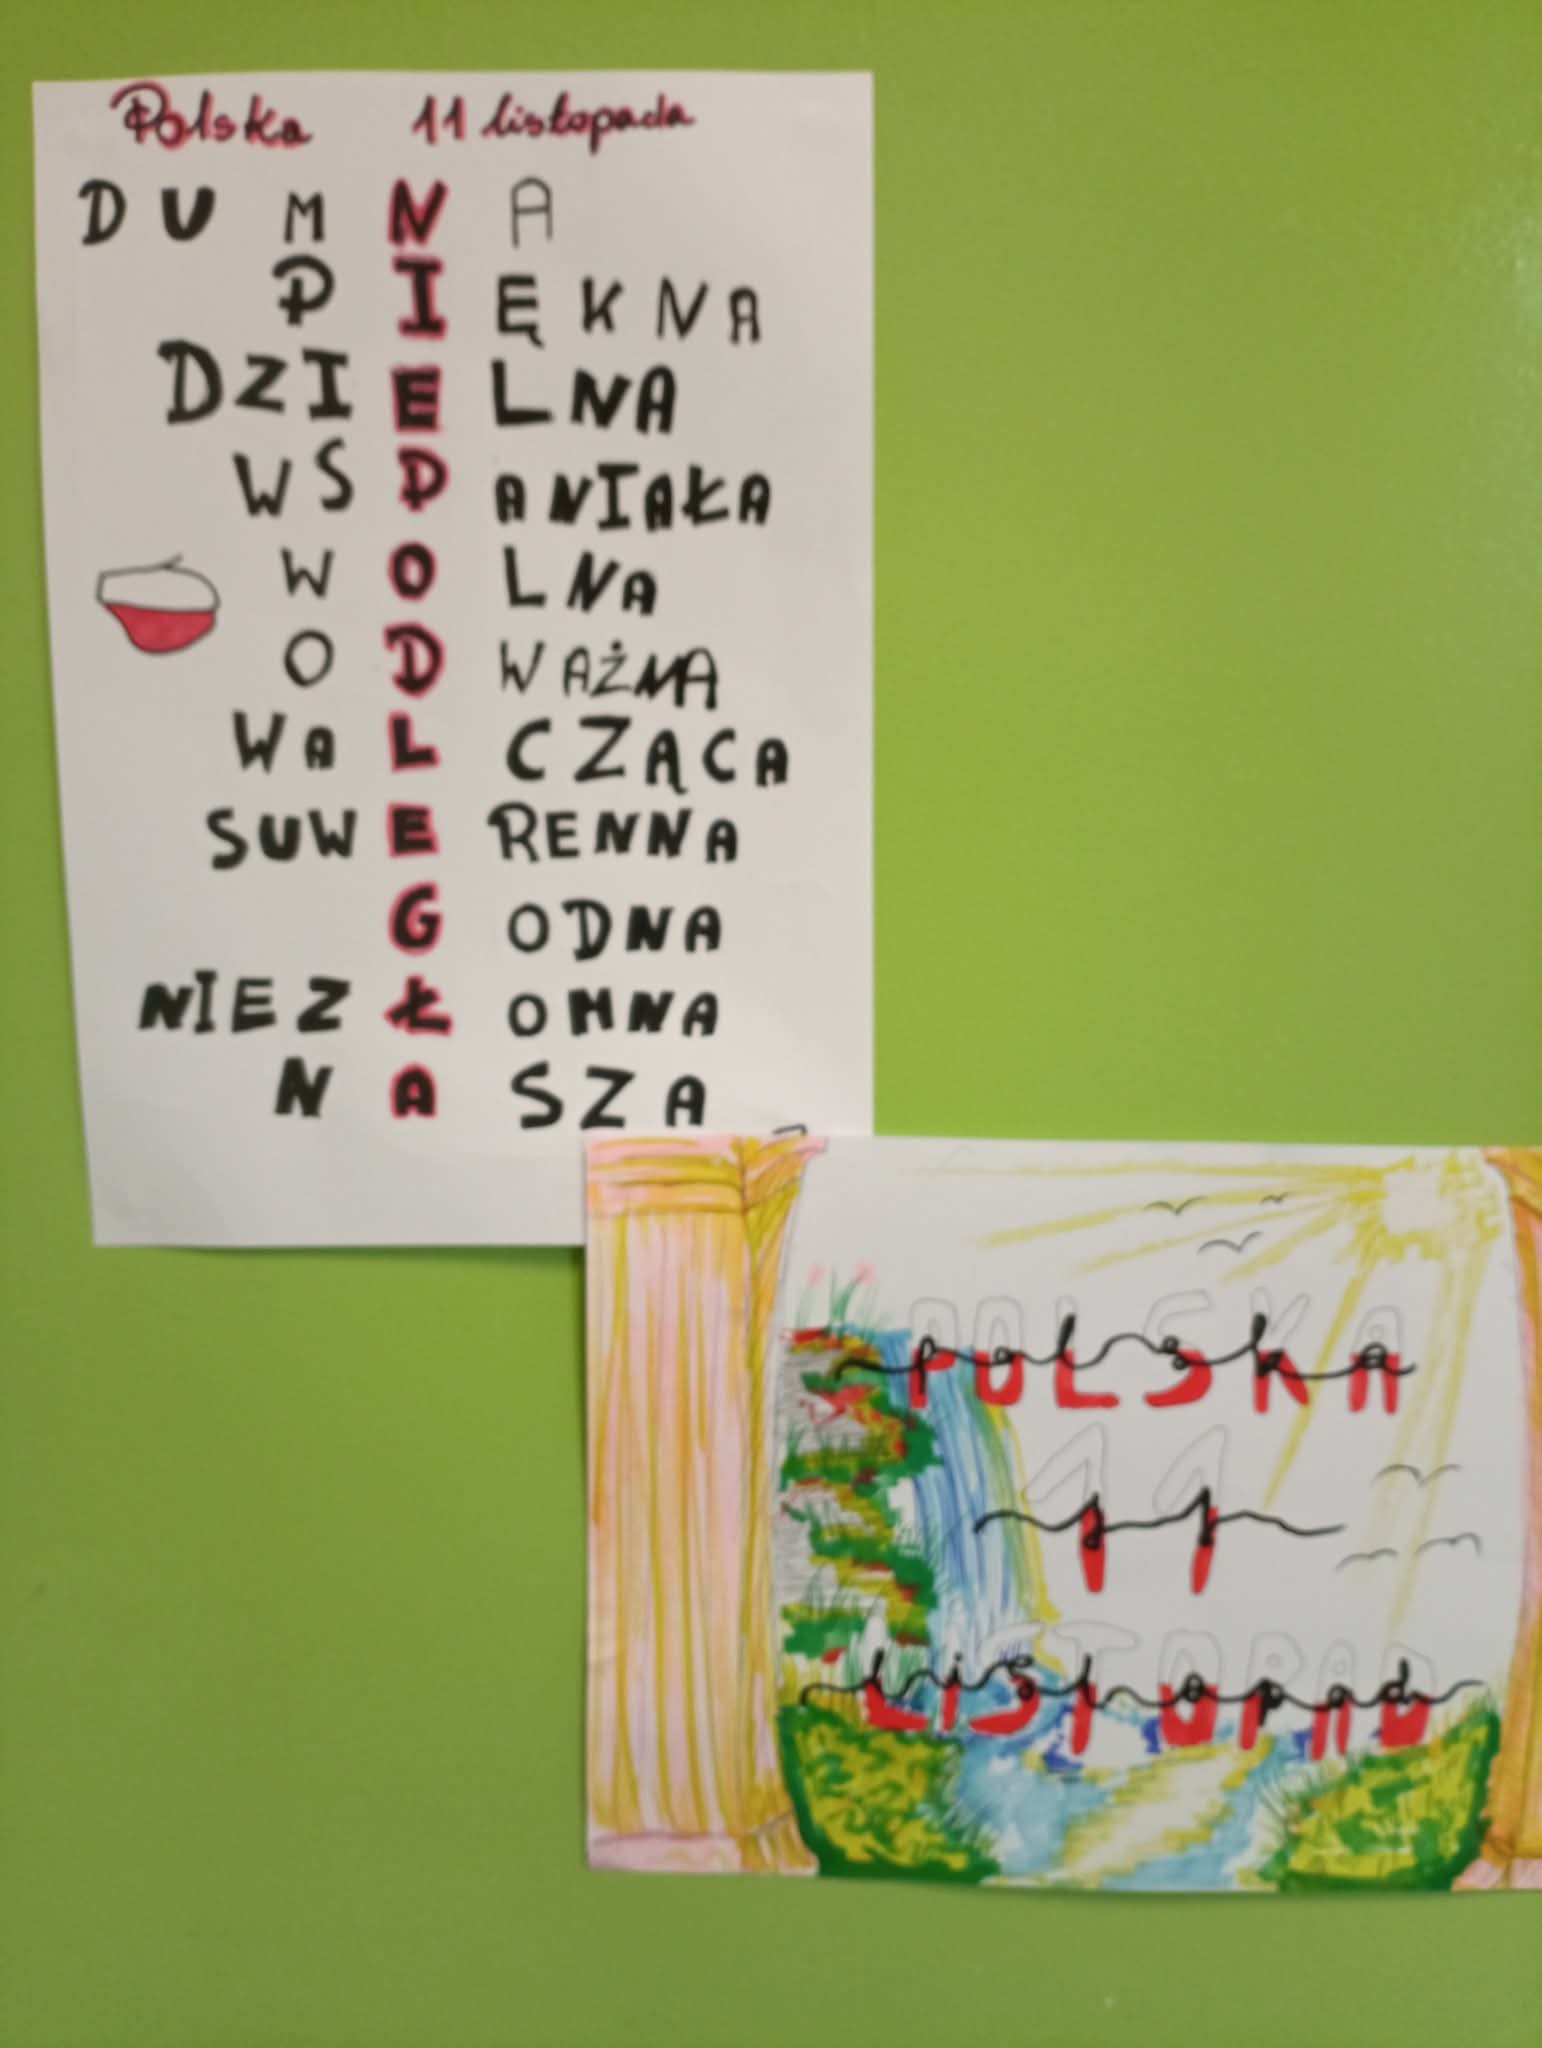 Polska 11 listopada
DUMNA
PIĘKNA
DZIELNA
WSPANIAŁA
WOLNA
ODWAŻNA
WALCZĄCA
SUWERENNA
GODNA
NIEZŁOMNA
NASZA
POLSKA
polska
11
11
LISTOPAD
listopad